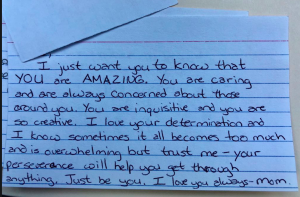 I just want you to know that
YOU are AMAZING. You are caring
and are always concerned about those
around you. You are inquisitive and you are
so creative. I love your determination and
I know sometimes it all becomes too much
and is overwhelming but trust me - your
perseverence will help you get through
anything. Just be you, I love you always - mom